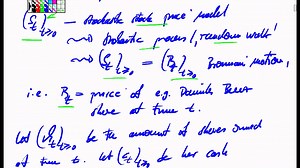 (S_t)_{t≥0} — stochastic stock price model
⇝ stochastic process / "random walk"
⇝ (S_t)_{t≥0} = (B_t)_{t≥0} Brownian motion,
i.e. B_t = price of e.g. Danube Beer
share at time t.
Let (V_t)_{t≥0} be the amount of shares owned
at time t. Let (c_t)_{t≥0} be her cash